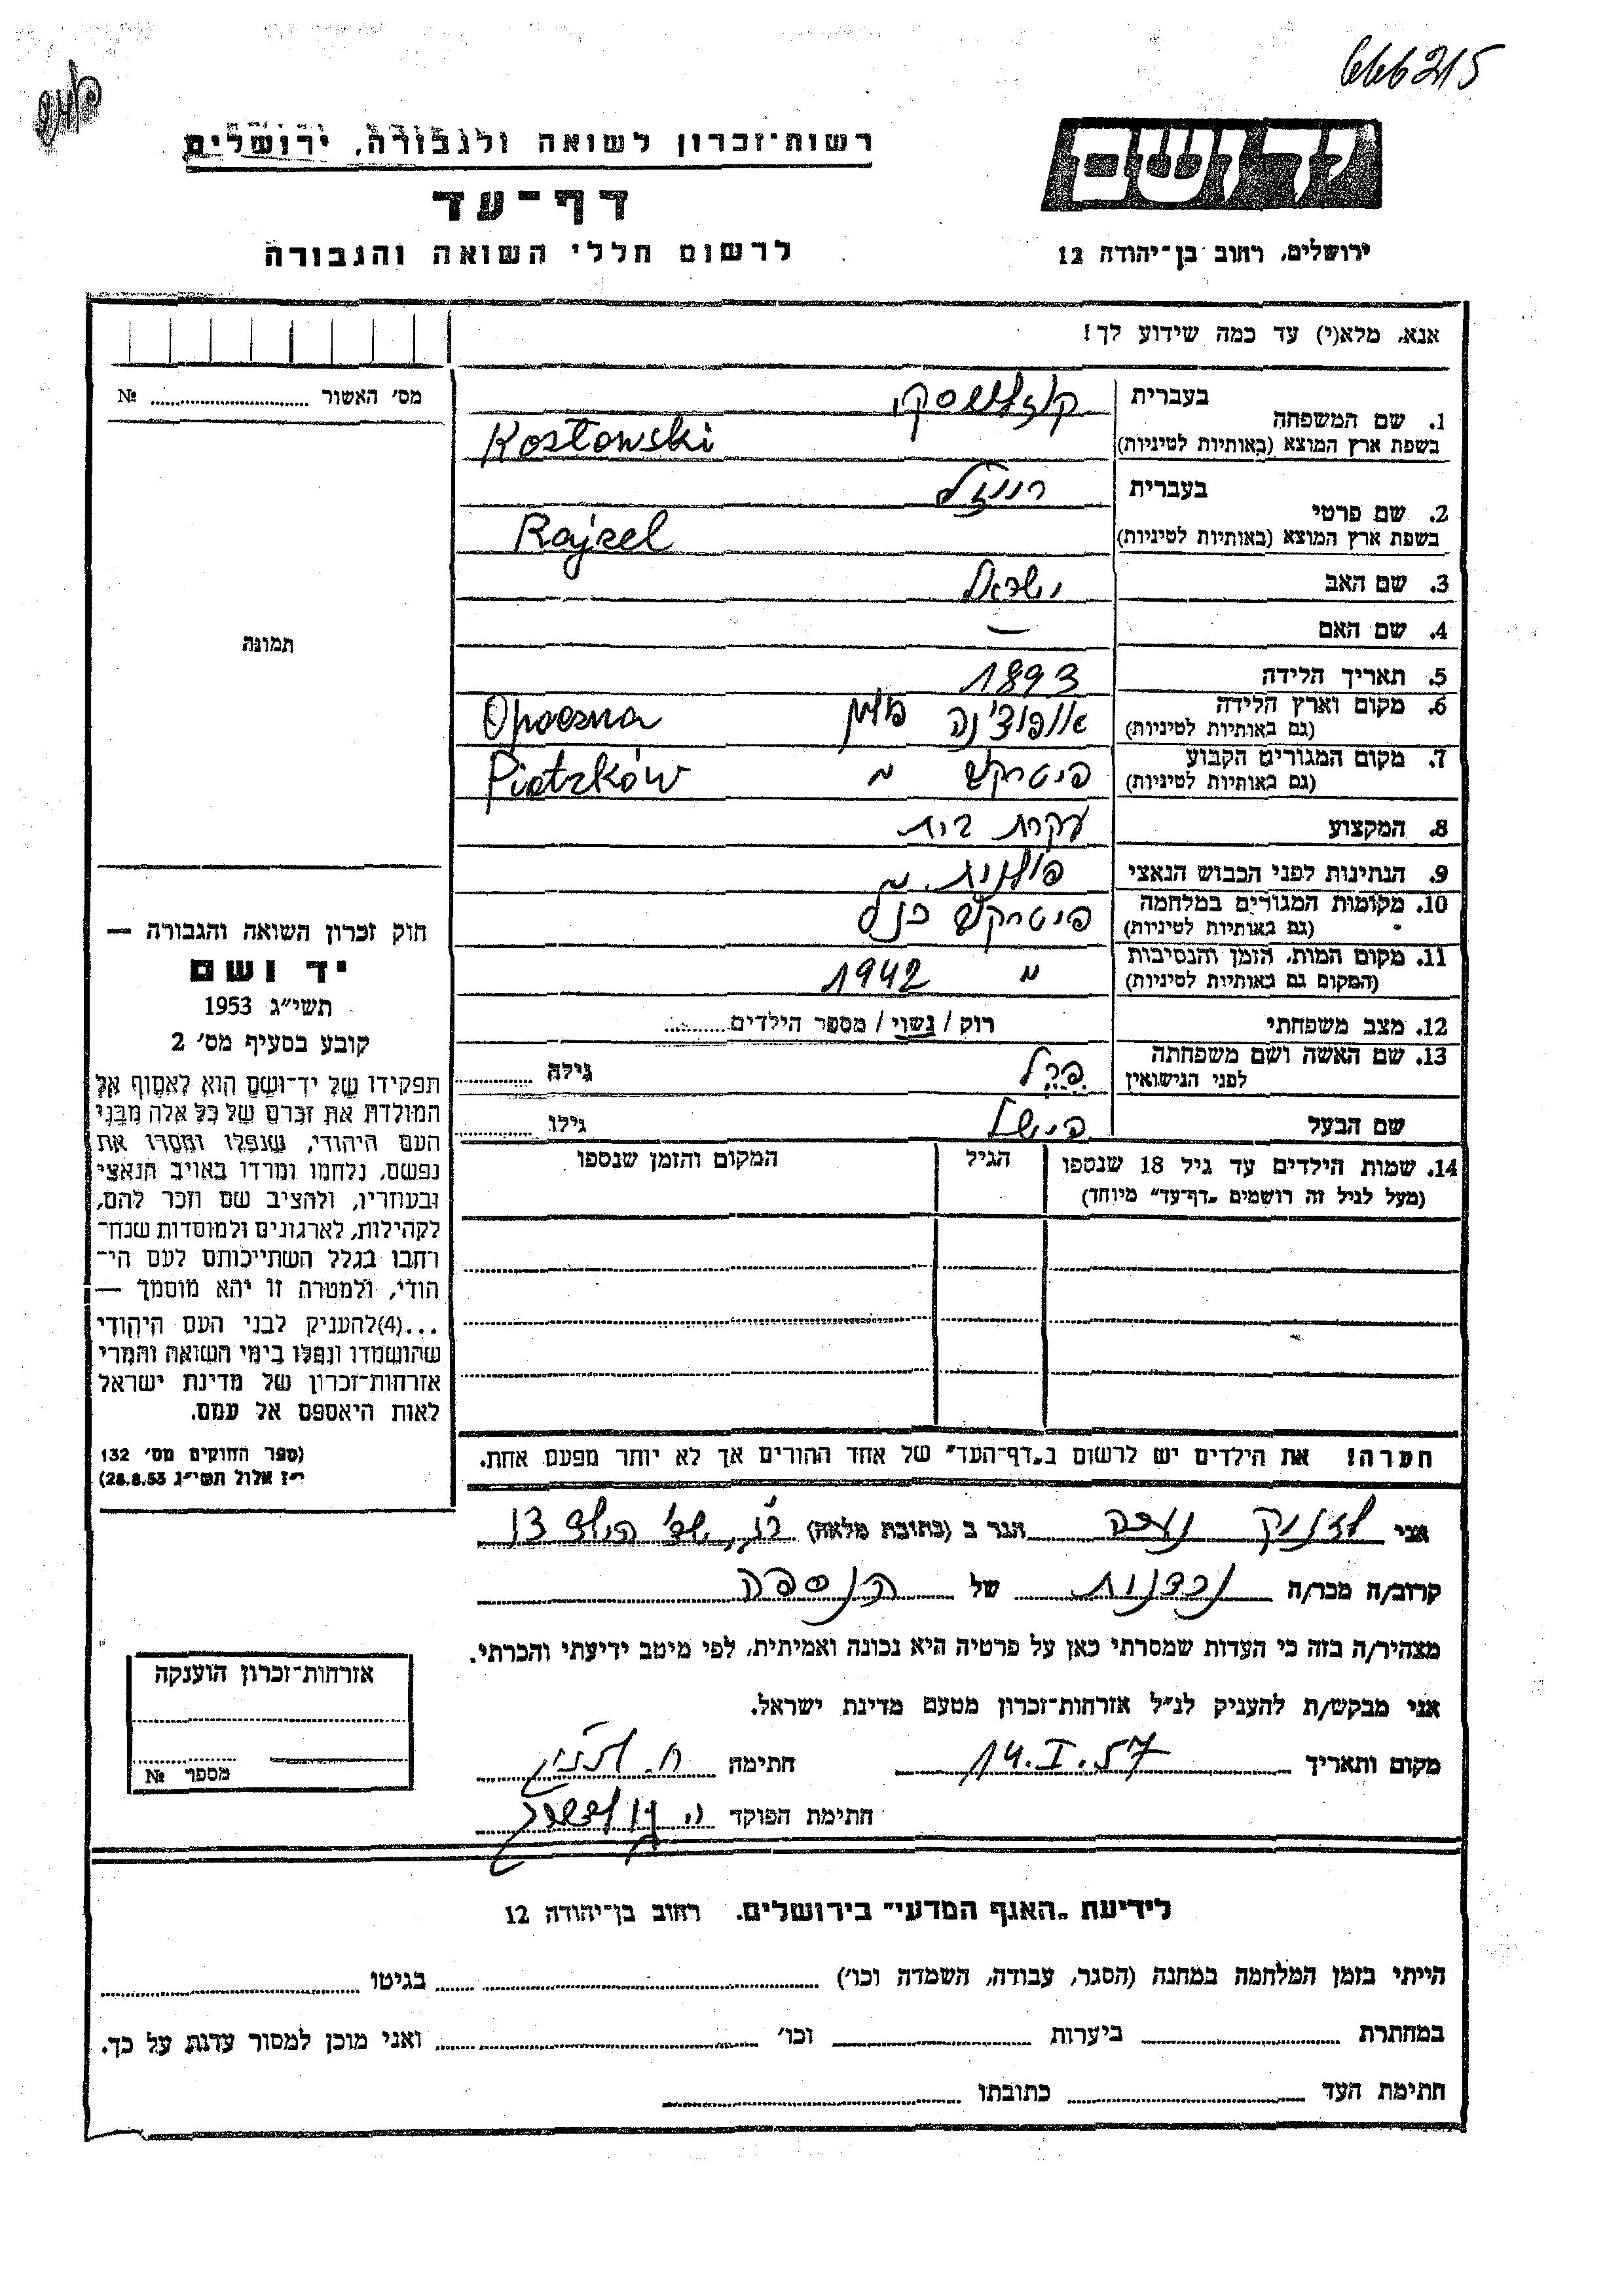 666215
רשות־זכרון לשואה ולגבורה, ירושלים
דף־עד
לרשום חללי השואה והגבורה
יד ושם
ירושלים, רחוב בן־יהודה 12
אנא, מלא(י) עד כמה שידוע לך!
מס׳ האשור № ........
1. שם המשפחה
בעברית
קוזלובסקי
בשפת ארץ המוצא (באותיות לטיניות)
Kostowski
2. שם פרטי
בעברית
רייזל
בשפת ארץ המוצא (באותיות לטיניות)
Rajzel
3. שם האב ישראל
4. שם האם —
5. תאריך הלידה 1893
6. מקום וארץ הלידה
(גם באותיות לטיניות)
אופוצ'נה פולין Opoczna
7. מקום המגורים הקבוע
(גם באותיות לטיניות)
Piotrków
8. המקצוע עקרת בית
9. הנתינות לפני הכבוש הנאצי פולנית
10. מקומות המגורים במלחמה
(גם באותיות לטיניות)
כנ"ל
11. מקום המות, הזמן והנסיבות
(המקום גם באותיות לטיניות)
1942
12. מצב משפחתי רוק / נשוי / מספר הילדים........
13. שם האשה ושם משפחתה
לפני הנישואין
גילה ........
שם הבעל
גילו ........
14. שמות הילדים עד גיל 18 שנספו
(מעל לגיל זה רושמים „דף־עד״ מיוחד)
הגיל
המקום והזמן שנספו
הערה! את הילדים יש לרשום ב„דף־העד״ של אחד ההורים אך לא יותר מפעם אחת.
תמונה
חוק זכרון השואה והגבורה —
יד ושם
תשי״ג 1953
קובע בסעיף מס׳ 2
תפקידו של יד־ושם הוא לאסוף אל
המולדת את זכרם של כל אלה מבני
העם היהודי, שנפלו ומסרו את
נפשם, נלחמו ומרדו באויב הנאצי
ובעוזריו, ולהציב שם וזכר להם,
לקהילות, לארגונים ולמוסדות שנח־
רבו בגלל השתייכותם לעם הי־
הודי, ולמטרה זו יהא מוסמך —
...(4)להעניק לבני העם היהודי
שהושמדו ונפלו בימי השואה והמרי
אזרחות־זכרון של מדינת ישראל
לאות היאספם אל עמם.
(ספר החוקים מס׳ 132
י״ז אלול תשי״ג 28.8.53)
אני
הגר ב (כתובת מלאה)
קרוב/ה מכר/ה
של הנספה
מצהיר/ה בזה כי העדות שמסרתי כאן על פרטיה היא נכונה ואמיתית, לפי מיטב ידיעתי והכרתי.
אני מבקש/ת להעניק לנ״ל אזרחות־זכרון מטעם מדינת ישראל.
מקום ותאריך 14.I.57 חתימה
חתימת הפוקד
אזרחות־זכרון הוענקה
מספר №
לידיעת „האגף המדעי״ בירושלים, רחוב בן־יהודה 12
הייתי בזמן המלחמה במחנה (הסגר, עבודה, השמדה וכו׳) ........ בגיטו ........
במחתרת ........ ביערות ........ וכו׳ ........ ואני מוכן למסור עדות על כך.
חתימת העד ........ כתובתו ........